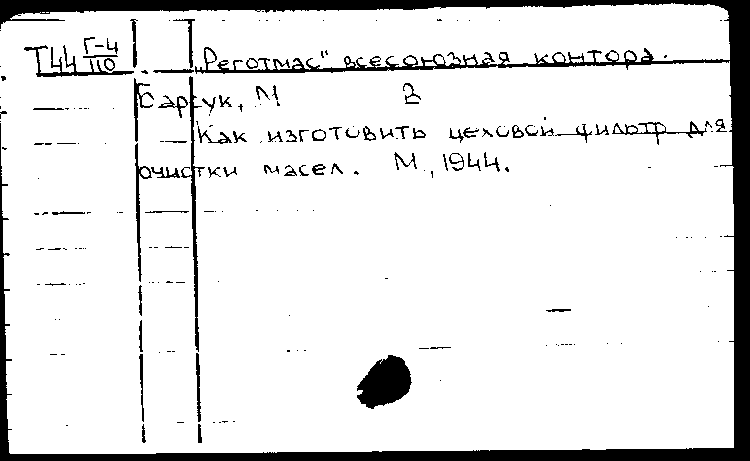 Т44 Г-4/110 „Реготмас" всесоюзная контора.
Барсук, М В
Как изготовить цеховой фильтр для
очистки масел. М, 1944.